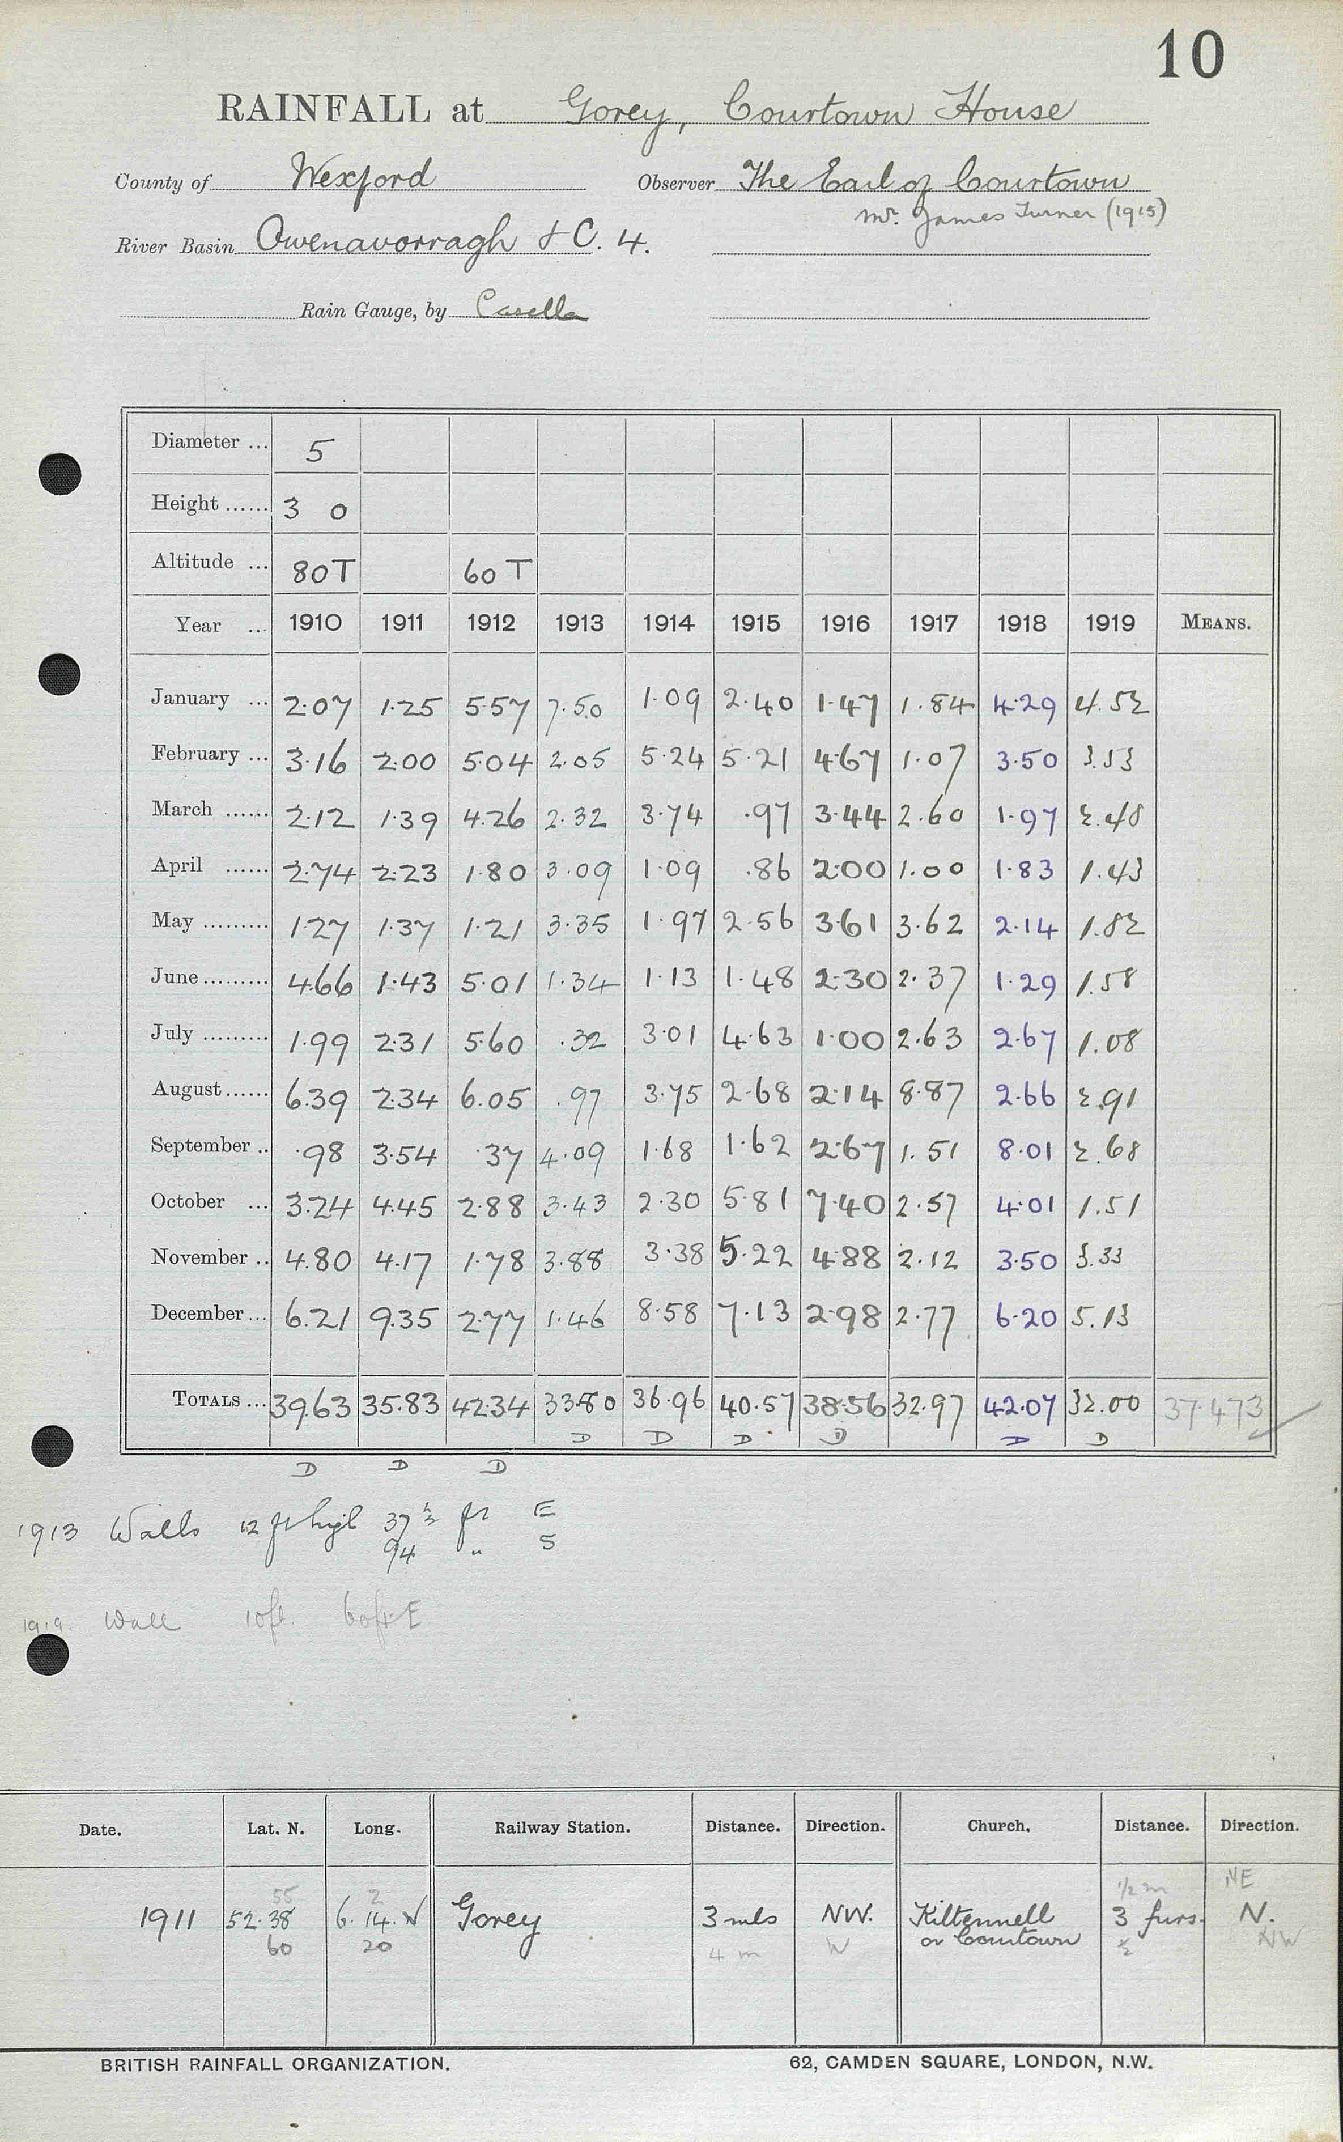 10
RAINFALL at Gorey, Courtown House
County of Wexford Observer The Earl of Courtown
Mr. James Turner (1915)
River Basin Owenavorragh & C. 4.
Rain Gauge, by Casella
Diameter ... 5
Height ...... 3 0
Altitude ... 80T 60T
Year ... 1910 1911 1912 1913 1914 1915 1916 1917 1918 1919 MEANS.
January ... 2.07 1.25 5.57 7.50 1.09 2.40 1.47 1.84 4.29 4.52
February ... 3.16 2.00 5.04 2.05 5.24 5.21 4.67 1.07 3.50 3.53
March ...... 2.12 1.39 4.26 2.32 3.74 .97 3.44 2.60 1.97 2.48
April ...... 2.74 2.23 1.80 3.09 1.09 .86 2.00 1.00 1.83 1.43
May ......... 1.27 1.37 1.21 3.35 1.97 2.56 3.61 3.62 2.14 1.82
June ......... 4.66 1.43 5.01 1.34 1.13 1.48 2.30 2.37 1.29 1.58
July ......... 1.99 2.31 5.60 .32 3.01 4.63 1.00 2.63 2.67 1.08
August ...... 6.39 2.34 6.05 .97 3.75 2.68 2.14 8.87 2.66 2.91
September .. .98 3.54 .37 4.09 1.68 1.62 2.67 1.51 8.01 2.68
October ... 3.24 4.45 2.88 3.43 2.30 5.81 7.40 2.57 4.01 1.51
November .. 4.80 4.17 1.78 3.88 3.38 5.22 4.88 2.12 3.50 3.33
December ... 6.21 9.35 2.77 1.46 8.58 7.13 2.98 2.77 6.20 5.13
TOTALS ... 39.63 35.83 42.34 33.80 36.96 40.57 38.56 32.97 42.07 32.00 37.473
D D D D D D
D D D
1913 Walls 12 ft high 37 ft E
94 " S
1919 Wall 10ft. 60ft E
Date. Lat. N. Long. Railway Station. Distance. Direction. Church. Distance. Direction.
55 2 1/2 m NE
1911 52.38 6.14.W Gorey 3 mls NW. Kiltennell 3 furs. N.
or Courtown
60 20 4 m W 1/2 NW
BRITISH RAINFALL ORGANIZATION. 62, CAMDEN SQUARE, LONDON, N.W.